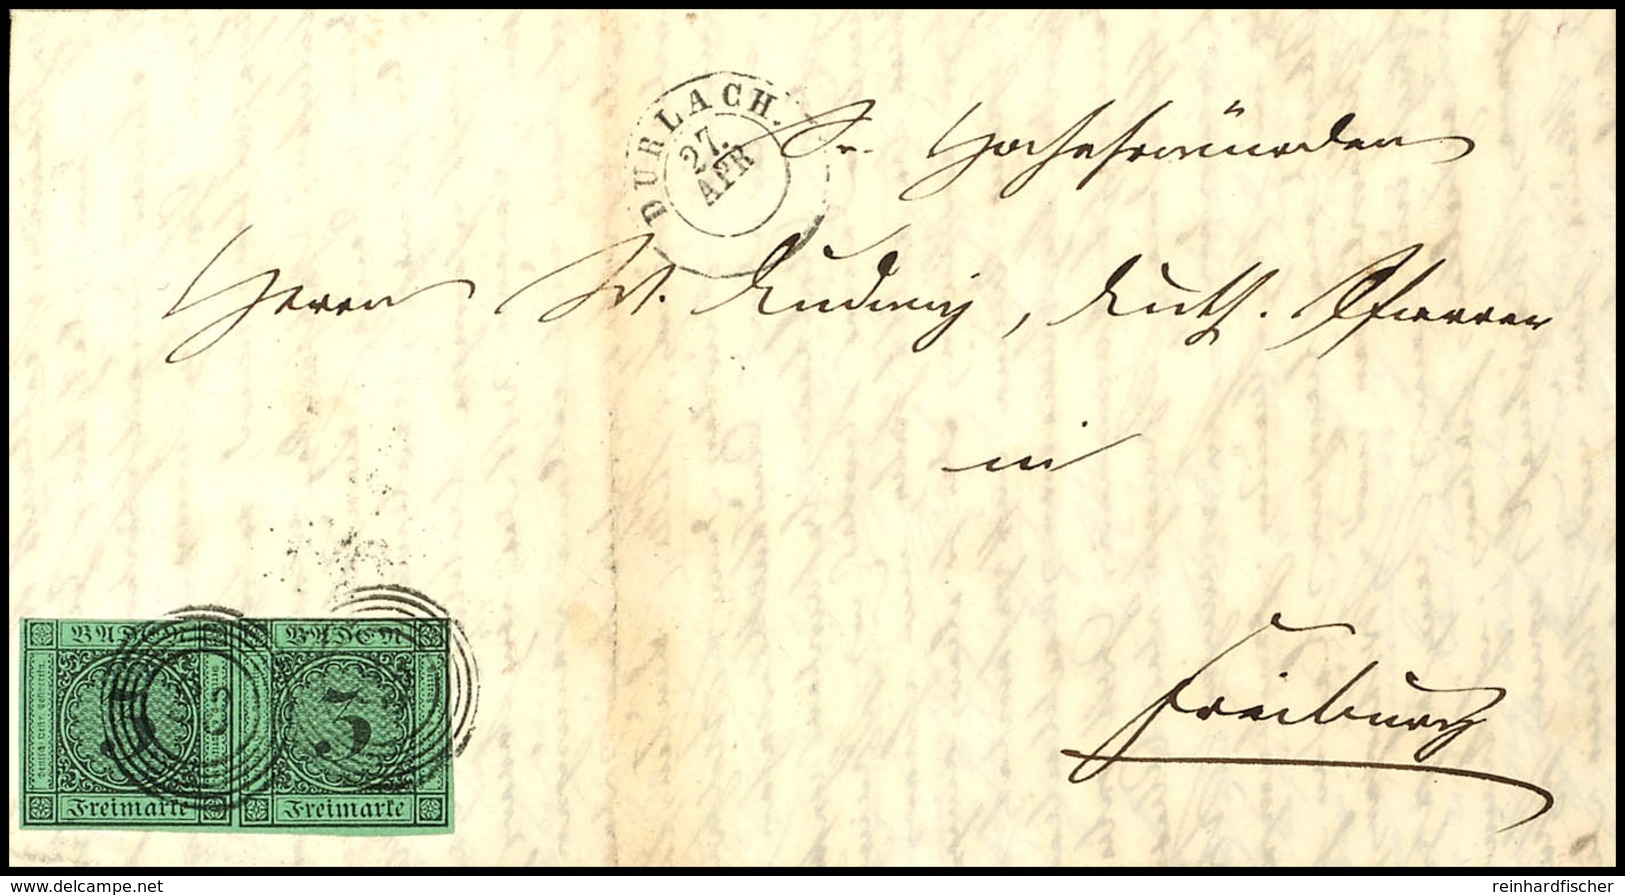 DURLACH.
27.
APR
Sr. Hochehrwürden
Herrn W. Ludwig, Luth. Pfarrer
in
Freiburg
BADEN BADEN
3 3
Freimarke Freimarke
www.delcampe.net
reinhardfischer